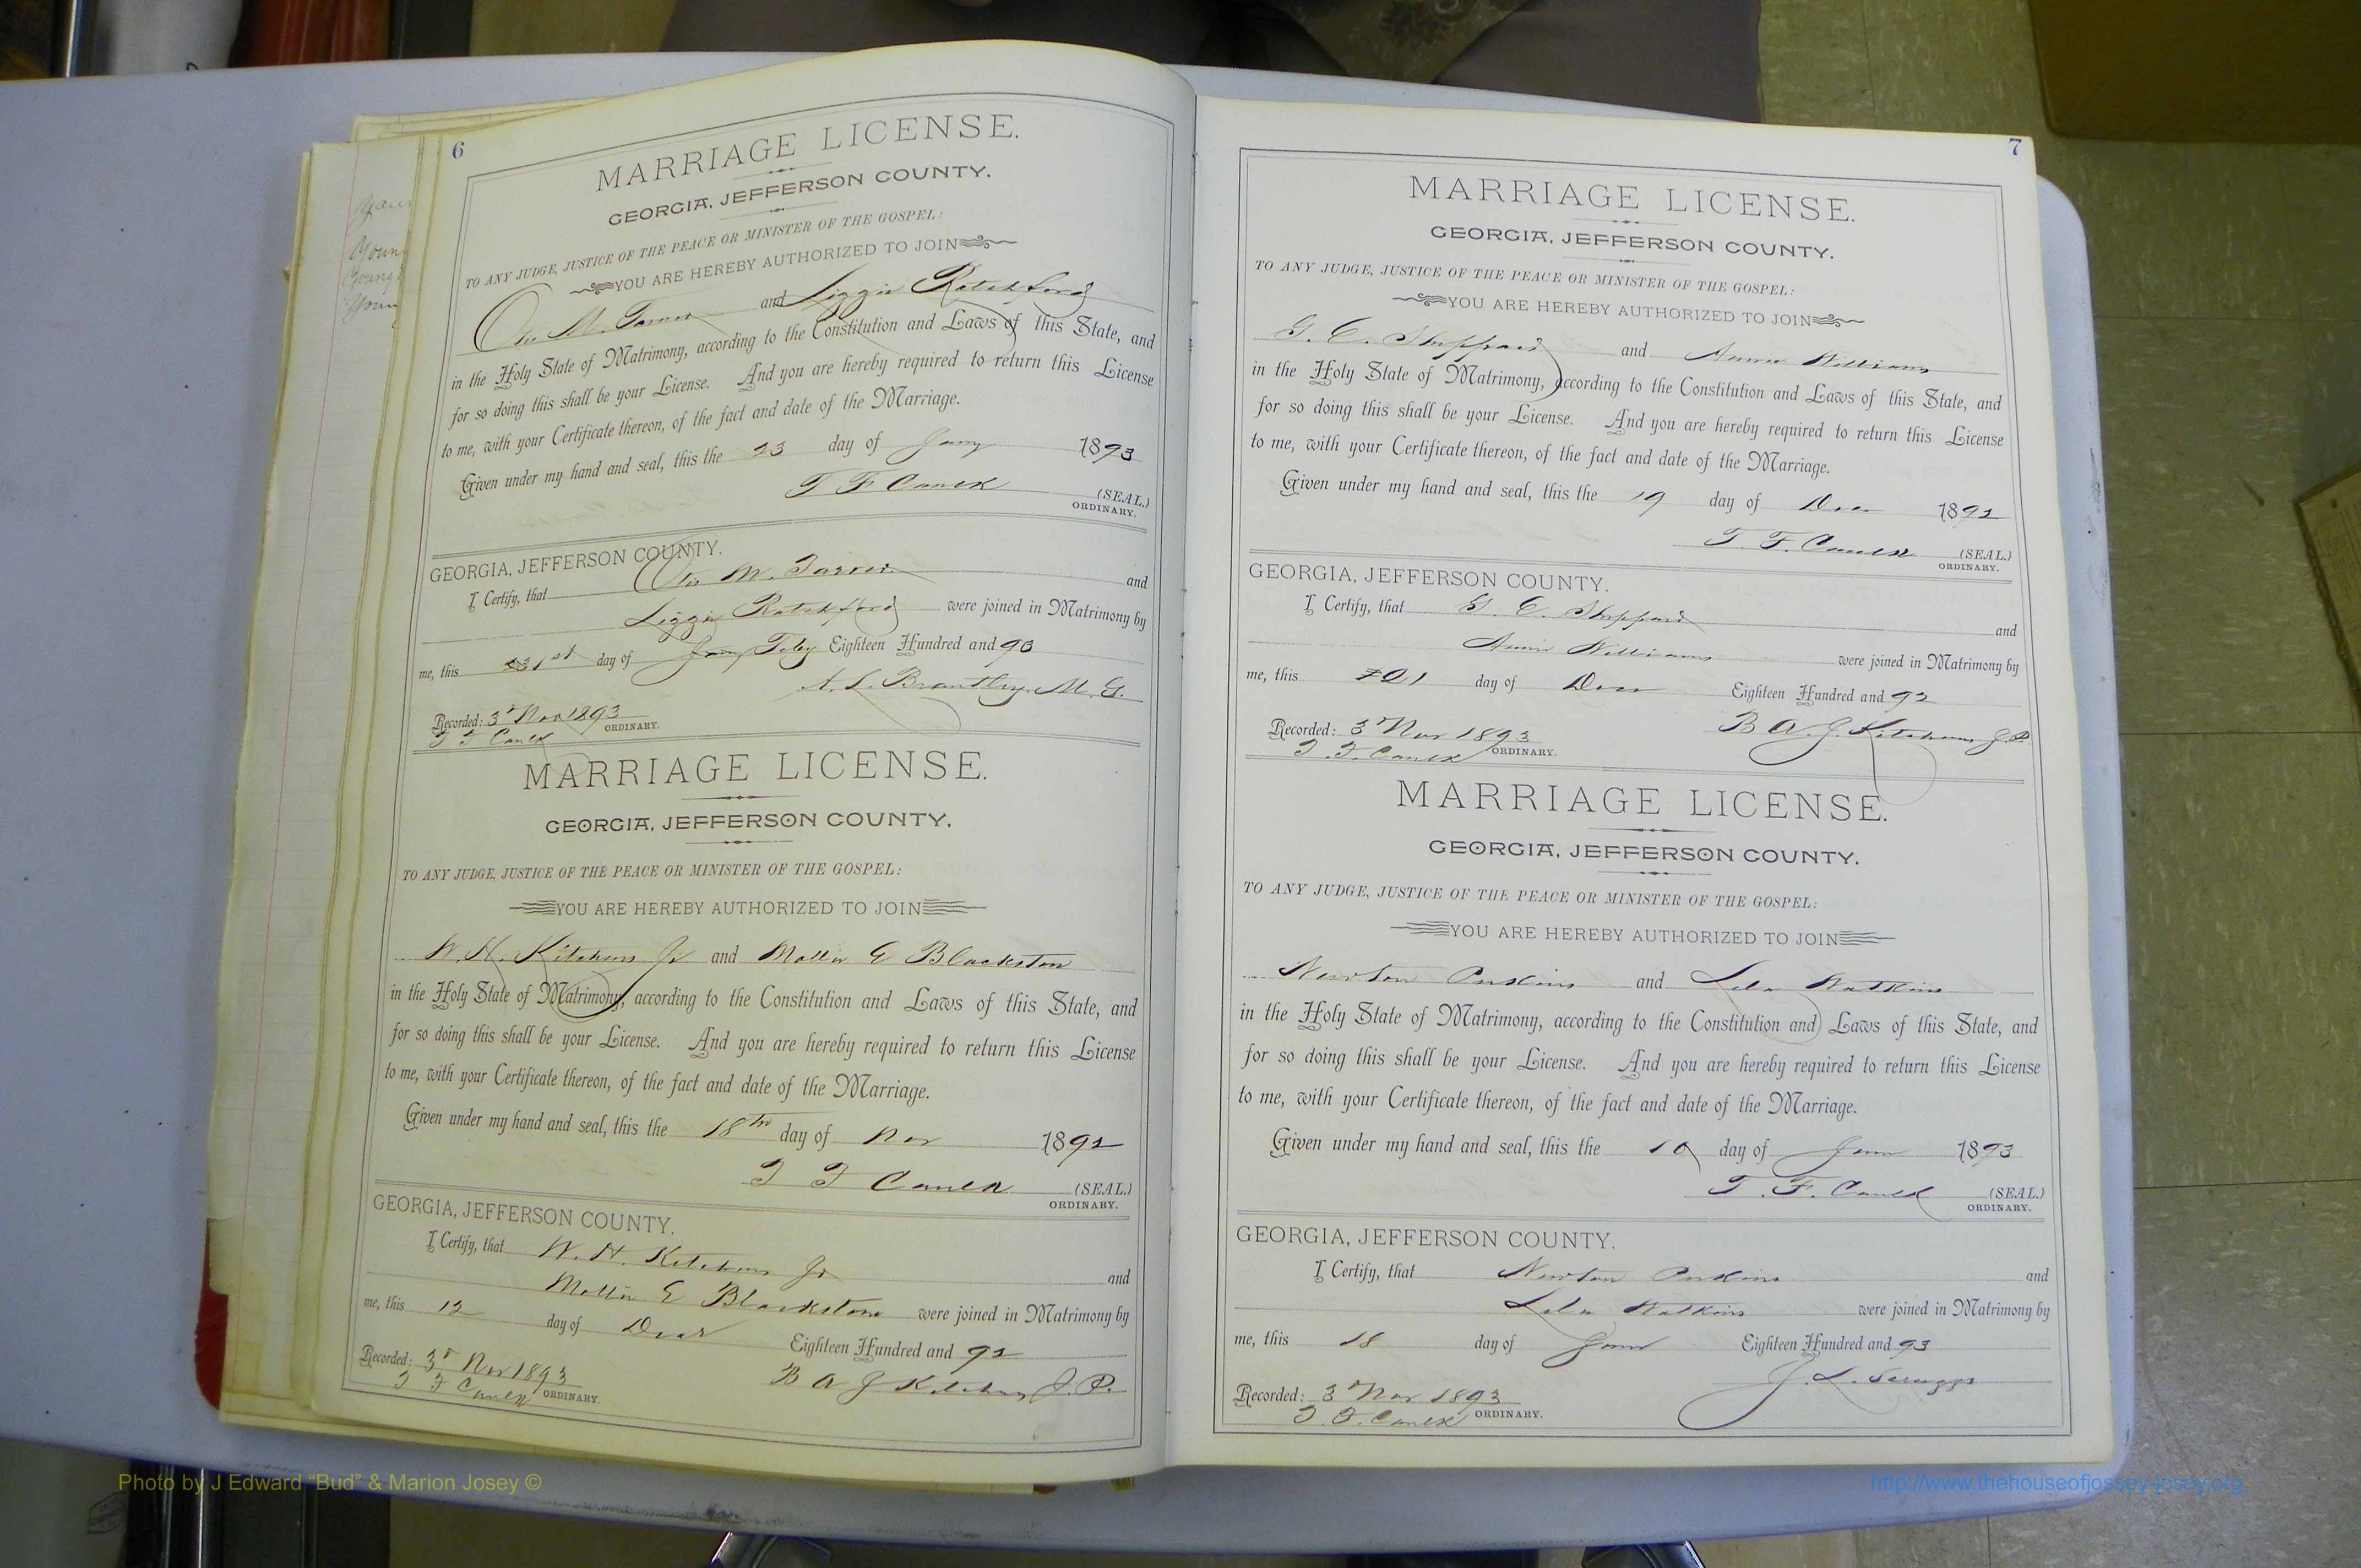 6
MARRIAGE LICENSE.
GEORGIA, JEFFERSON COUNTY.
TO ANY JUDGE, JUSTICE OF THE PEACE OR MINISTER OF THE GOSPEL:
YOU ARE HEREBY AUTHORIZED TO JOIN
M. and
in the Holy State of Matrimony, according to the Constitution and Laws of this State, and
for so doing this shall be your License. And you are hereby required to return this License
to me, with your Certificate thereon, of the fact and date of the Marriage.
Given under my hand and seal, this the 23 day of Jany 1893
T F Caulk (SEAL.)
ORDINARY.
GEORGIA, JEFFERSON COUNTY.
I Certify, that M. and
were joined in Matrimony by
me, this 1st day of Feby Eighteen Hundred and 93
A. L. Brantley M. G.
Recorded: 3d Nov 1893
T F Caulk ORDINARY.
MARRIAGE LICENSE.
GEORGIA, JEFFERSON COUNTY.
TO ANY JUDGE, JUSTICE OF THE PEACE OR MINISTER OF THE GOSPEL:
YOU ARE HEREBY AUTHORIZED TO JOIN
W. H. Kitchens Jr and Mollie E Blackston
in the Holy State of Matrimony, according to the Constitution and Laws of this State, and
for so doing this shall be your License. And you are hereby required to return this License
to me, with your Certificate thereon, of the fact and date of the Marriage.
Given under my hand and seal, this the 18th day of Nov 1892
T F Caulk (SEAL.)
ORDINARY.
GEORGIA, JEFFERSON COUNTY.
I Certify, that W. H. Kitchens Jr and
Mollie E Blackston were joined in Matrimony by
me, this 12 day of Eighteen Hundred and 92
B A J Kitchens J. P.
Recorded: 3d Nov 1893
T F Caulk ORDINARY.
7
MARRIAGE LICENSE.
GEORGIA, JEFFERSON COUNTY.
TO ANY JUDGE, JUSTICE OF THE PEACE OR MINISTER OF THE GOSPEL:
YOU ARE HEREBY AUTHORIZED TO JOIN
G. C. Sheppard and Annie Williams
in the Holy State of Matrimony, according to the Constitution and Laws of this State, and
for so doing this shall be your License. And you are hereby required to return this License
to me, with your Certificate thereon, of the fact and date of the Marriage.
Given under my hand and seal, this the 19 day of Dec 1892
T. F. Caulk (SEAL.)
ORDINARY.
GEORGIA, JEFFERSON COUNTY.
I Certify, that G. C. Sheppard and
Annie Williams were joined in Matrimony by
me, this 21 day of Dec Eighteen Hundred and 92
B A. J. Kitchens J. P.
Recorded: 3d Nov 1893
T. F. Caulk ORDINARY.
MARRIAGE LICENSE.
GEORGIA, JEFFERSON COUNTY.
TO ANY JUDGE, JUSTICE OF THE PEACE OR MINISTER OF THE GOSPEL:
YOU ARE HEREBY AUTHORIZED TO JOIN
Newton and Lela Watkins
in the Holy State of Matrimony, according to the Constitution and Laws of this State, and
for so doing this shall be your License. And you are hereby required to return this License
to me, with your Certificate thereon, of the fact and date of the Marriage.
Given under my hand and seal, this the 10 day of 1893
T. F. Caulk (SEAL.)
ORDINARY.
GEORGIA, JEFFERSON COUNTY.
I Certify, that Newton and
Lela Watkins were joined in Matrimony by
me, this 18 day of Eighteen Hundred and 93
J. L. Scruggs
Recorded: 3d Nov 1893
T. F. Caulk ORDINARY.
Photo by J Edward “Bud” & Marion Josey ©
http://www.thehouseofjossey-josey.org